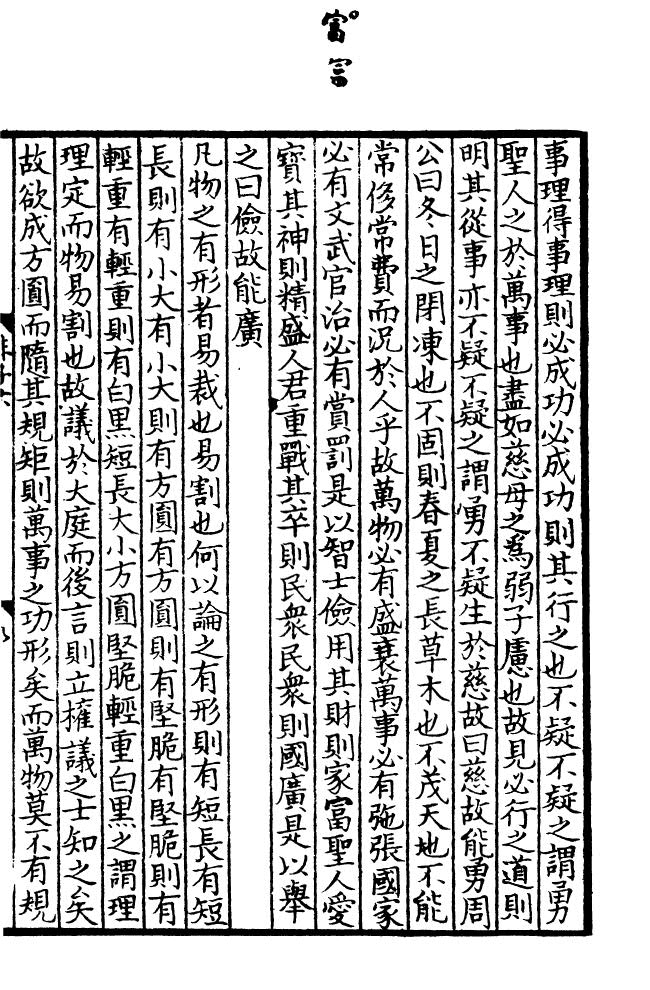 富
宫
事理得事理則必成功必成功則其行之也不疑不疑之謂勇
聖人之於萬事也盡如慈母之爲弱子慮也故見必行之道則
明其從事亦不疑不疑之謂勇不疑生於慈故曰慈故能勇周
公曰冬日之閉凍也不固則春夏之長草木也不茂天地不能
常侈常費而況於人乎故萬物必有盛衰萬事必有㢮張國家
必有文武官治必有賞罰是以智士儉用其財則家富聖人愛
寳其神則精盛人君重戰其卒則民衆民衆則國廣是以舉
之曰儉故能廣
凡物之有形者易裁也易割也何以論之有形則有短長有短
長則有小大有小大則有方圓有方圓則有堅脆有堅脆則有
輕重有輕重則有白黒短長大小方圓堅脆輕重白黒之謂理
理定而物易割也故議於大庭而後言則立權議之士知之矣
故欲成方圓而隨其規矩則萬事之功形矣而萬物莫不有規